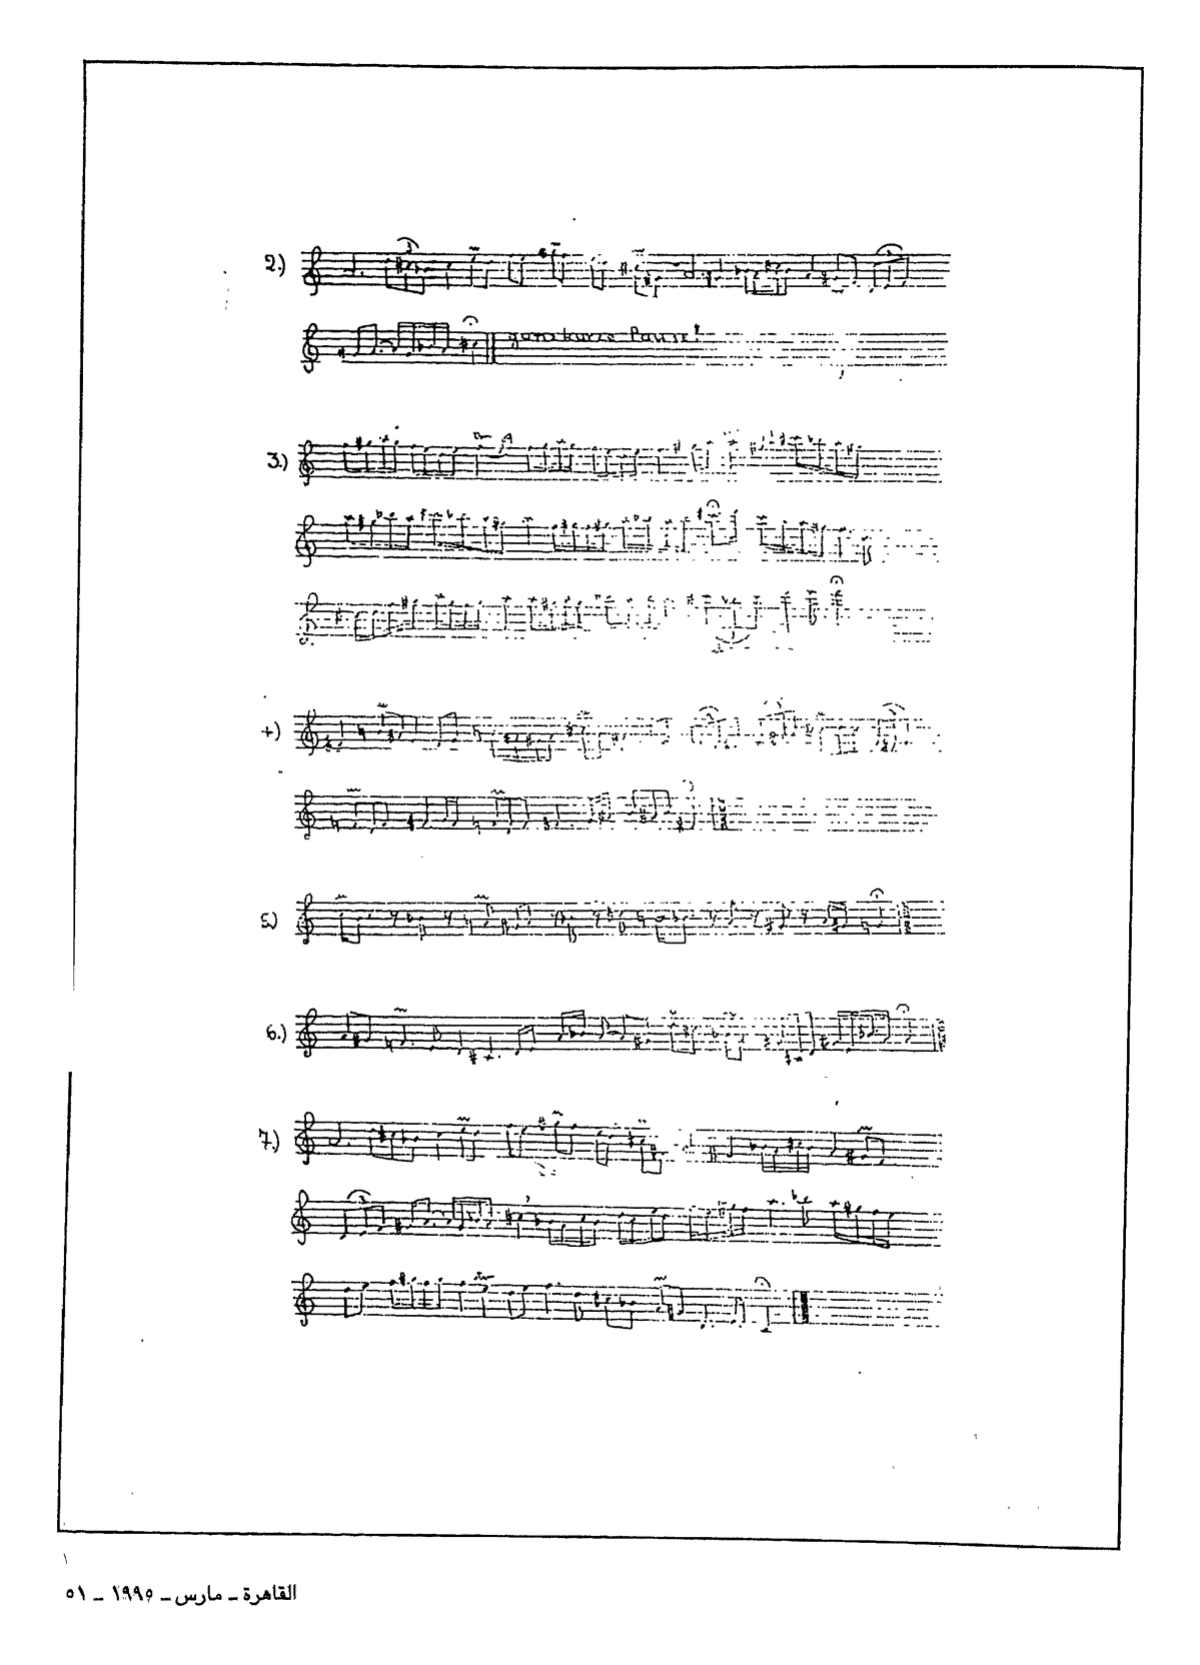 2.)
ganz kurze Pause!
3.)
4)
5.)
6.)
7.)
القاهرة ــ مارس ــ ١٩٩٥ ــ ٥١